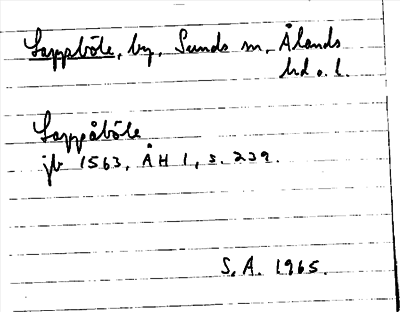 Lappböle, by, Sunds sn, Ålands
hd o. l.
Lappåböle
jb 1563, ÅH 1, s. 239.
S. A. 1965.